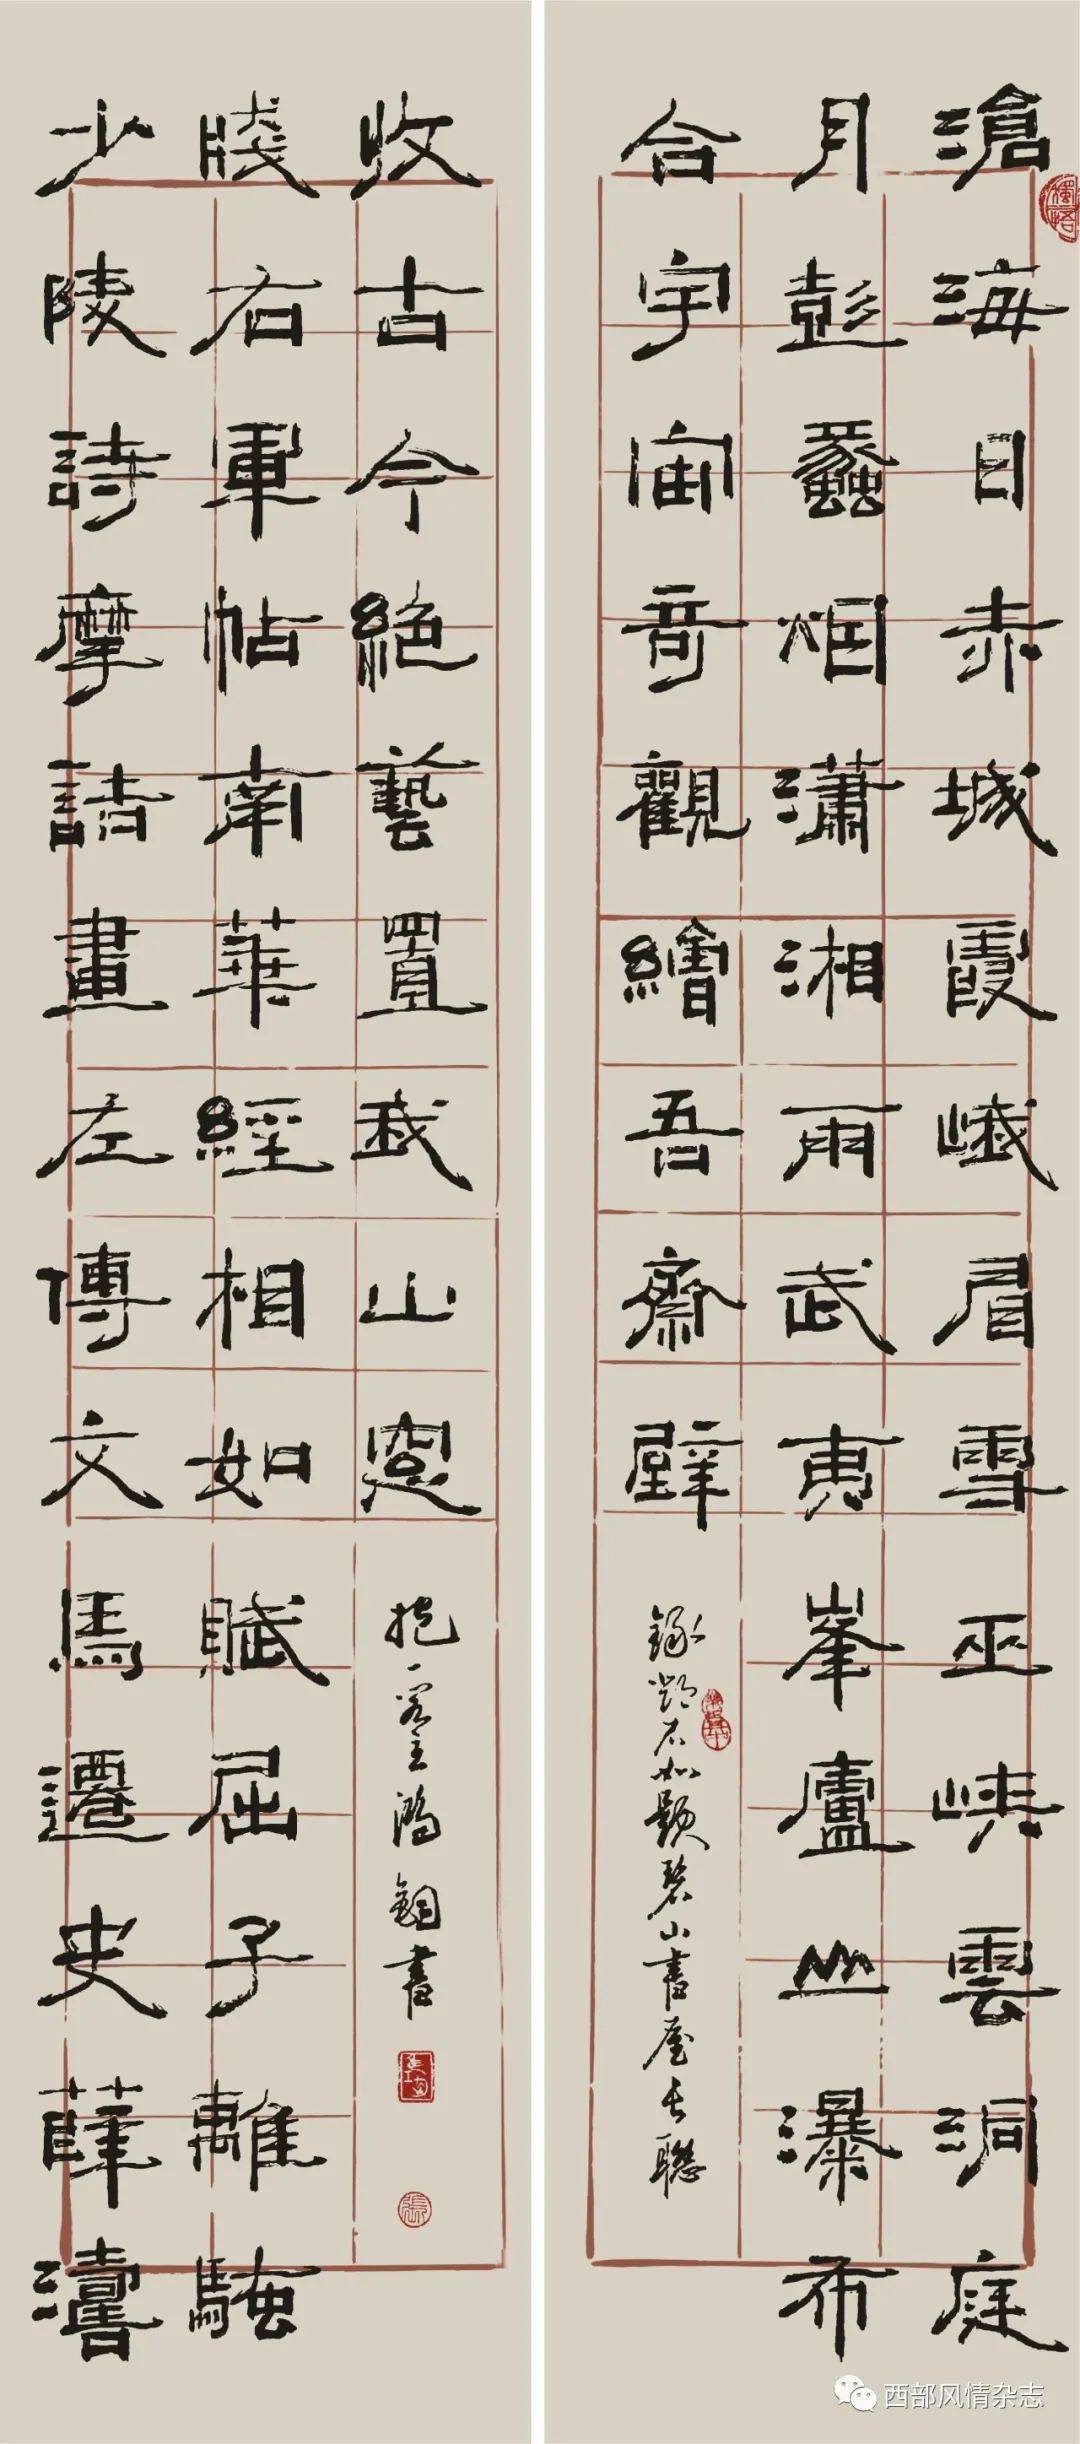 滄海日赤城霞峨眉雪巫峽雲洞庭
月彭蠡烟瀟湘雨武夷峯廬山瀑布
合宇宙奇觀繪吾齋壁
錄鄧石如題碧山書屋長聯
少陵詩摩詰畫左傳文馬遷史薛濤
牋右軍帖南華經相如賦屈子離騷
收古今絕藝置我山窗
抱一 書
西部风情杂志